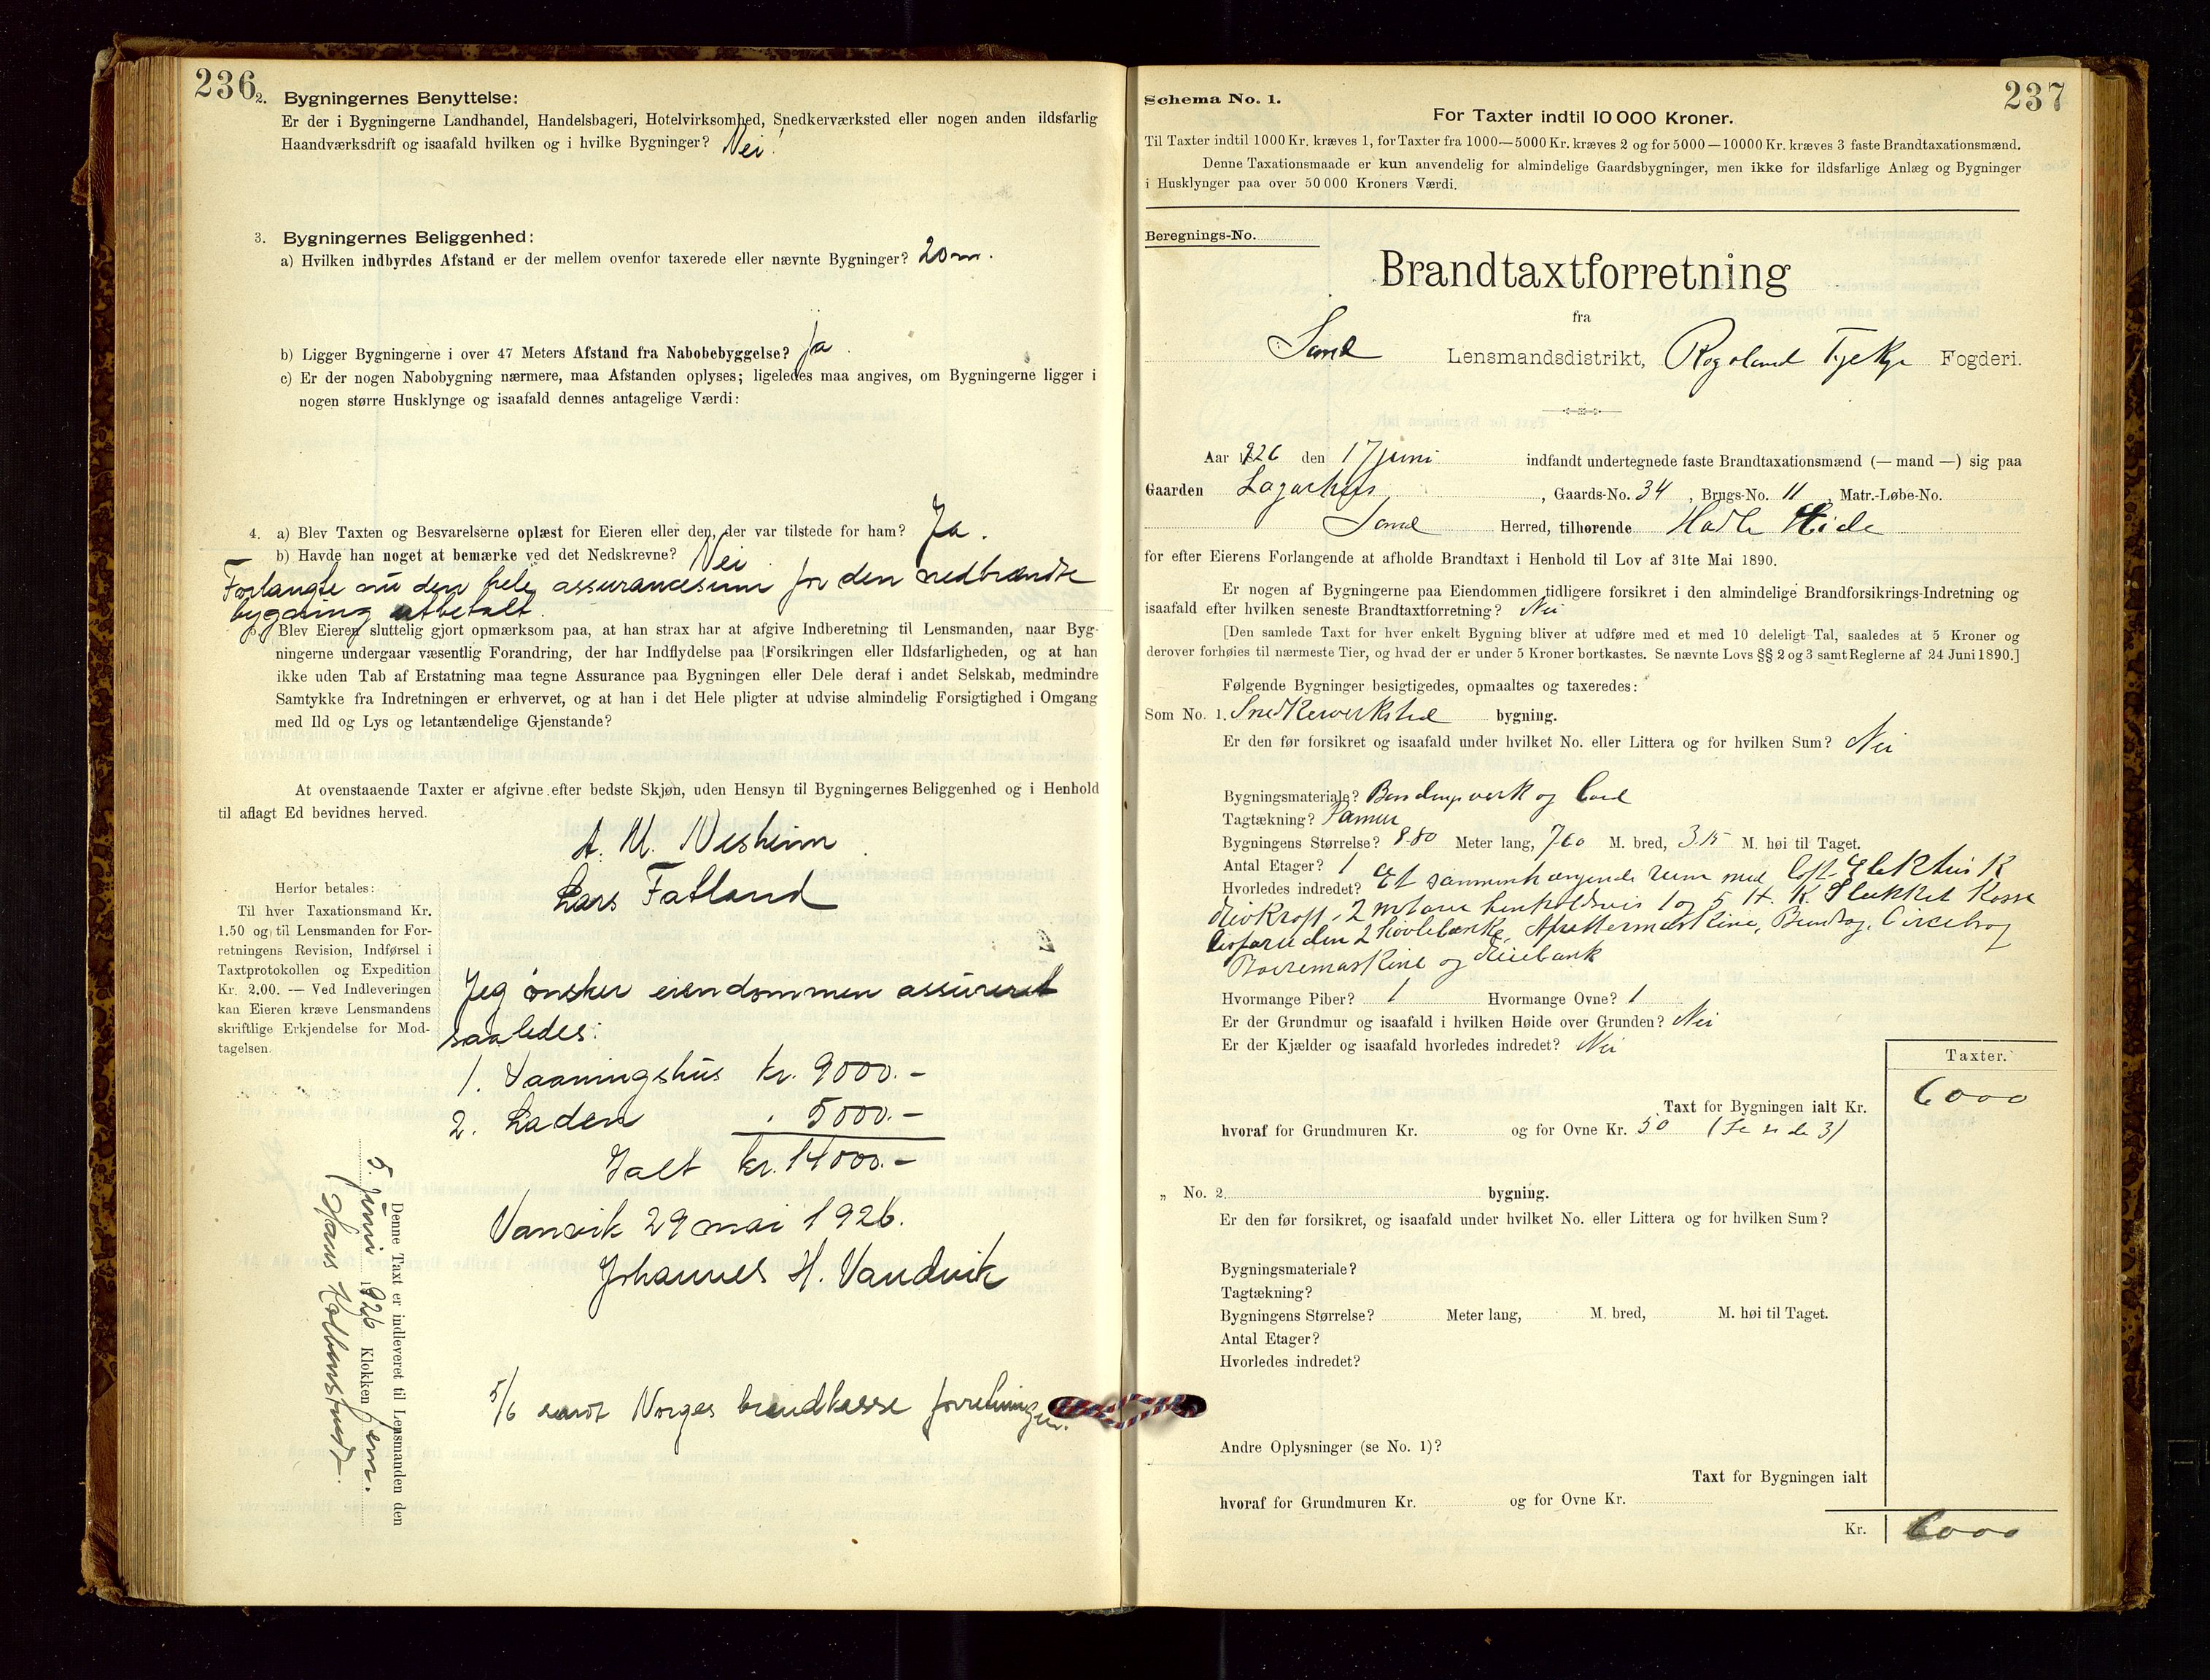 236
2. Bygningernes Benyttelse:
Er der i Bygningerne Landhandel, Handelsbageri, Hotelvirksomhed, Snedkerværksted eller nogen anden ildsfarlig
Haandværksdrift og isaafald hvilken og i hvilke Bygninger? Nei!
3. Bygningernes Beliggenhed:
a) Hvilken indbyrdes Afstand er der mellem ovenfor taxerede eller nævnte Bygninger? 20 m.
b) Ligger Bygningerne i over 47 Meters Afstand fra Nabobebyggelse? Ja
c) Er der nogen Nabobygning nærmere, maa Afstanden oplyses; ligeledes maa angives, om Bygningerne ligger i
nogen større Husklynge og isaafald dennes antagelige Værdi:
4. a) Blev Taxten og Besvarelserne oplæst for Eieren eller den, der var tilstede for ham? Ja.
b) Havde han noget at bemærke ved det Nedskrevne? Nei
Forlangte nu den hele assurancesum for den nedbrændte
bygding utbetalt.
5. Blev Eieren sluttelig gjort opmærksom paa, at han strax har at afgive Indberetning til Lensmanden, naar Byg-
ningerne undergaar væsentlig Forandring, der har Indflydelse paa Forsikringen eller Ildsfarligheden, og at han
ikke uden Tab af Erstatning maa tegne Assurance paa Bygningen eller Dele deraf i andet Selskab, medmindre
Samtykke fra Indretningen er erhvervet, og at han i det Hele pligter at udvise almindelig Forsigtighed i Omgang
med Ild og Lys og letantændelige Gjenstande?
At ovenstaaende Taxter er afgivne efter bedste Skjøn, uden Hensyn til Bygningernes Beliggenhed og i Henhold
til aflagt Ed bevidnes herved.
A. M. Nesheim
Lars Fatland
Herfor betales:
Til hver Taxationsmand Kr.
1.50 og til Lensmanden for For-
retningens Revision, Indførsel i
Taxtprotokollen og Expedition
Kr. 2.00. — Ved Indleveringen
kan Eieren kræve Lensmandens
skriftlige Erkjendelse for Mod-
tagelsen.
Jeg ønsker eiendommen assureret
saaledes:
1. Vaaningshus kr. 9000.-
2. Laden " 5000.-
Ialt kr. 14000.-
Vanvik 29 mai 1926.
Johannes H. Vandvik
Denne Taxt er indleveret til Lensmanden den
5 juni 1926 Klokken fem.
5/6 sendt Norges brandkasse forretningen.
237
Schema No. 1.
For Taxter indtil 10 000 Kroner.
Til Taxter indtil 1000 Kr. kræves 1, for Taxter fra 1000—5000 Kr. kræves 2 og for 5000—10000 Kr. kræves 3 faste Brandtaxationsmænd.
Denne Taxationsmaade er kun anvendelig for almindelige Gaardsbygninger, men ikke for ildsfarlige Anlæg og Bygninger
i Husklynger paa over 50 000 Kroners Værdi.
Beregnings-No.
Brandtaxtforretning
fra
Sand Lensmandsdistrikt, Rogaland Fylke Fogderi.
Aar 1926 den 17 juni indfandt undertegnede faste Brandtaxationsmænd (— mand —) sig paa
Gaarden , Gaards-No. 34, Brugs-No. 11, Matr.-Løbe-No.
Sand Herred, tilhørende Heide
for efter Eierens Forlangende at afholde Brandtaxt i Henhold til Lov af 31te Mai 1890.
Er nogen af Bygningerne paa Eiendommen tidligere forsikret i den almindelige Brandforsikrings-Indretning og
isaafald efter hvilken seneste Brandtaxtforretning? Nei
[Den samlede Taxt for hver enkelt Bygning bliver at udføre med et med 10 deleligt Tal, saaledes at 5 Kroner og
derover forhøies til nærmeste Tier, og hvad der er under 5 Kroner bortkastes. Se nævnte Lovs §§ 2 og 3 samt Reglerne af 24 Juni 1890.]
Følgende Bygninger besigtigedes, opmaaltes og taxeredes:
Som No. 1. Snedkerverksted bygning.
Er den før forsikret og isaafald under hvilket No. eller Littera og for hvilken Sum? Nei
Bygningsmateriale? Bindingsverk og bord
Tagtækning?
Bygningens Størrelse? 8.80 Meter lang, 7.60 M. bred, 3.15 M. høi til Taget.
Antal Etager? 1
Hvorledes indredet? Et sammenhængende rum med loft. Elektrisk
drivkraft, 2 motorer henholdsvis 1 og 5 H. K.
desforuden 2 høvlebænke, Avrettermaskine, Bandsag, Circelsag
Boremaskine og dreiebænk
Hvormange Piber? 1 Hvormange Ovne? 1
Er der Grundmur og isaafald i hvilken Høide over Grunden? Nei
Er der Kjælder og isaafald hvorledes indredet? Nei
Taxter.
Taxt for Bygningen ialt Kr. 6000
hvoraf for Grundmuren Kr. og for Ovne Kr. 50 (Se side 3)
„ No. 2. bygning.
Er den før forsikret, og isaafald under hvilket No. eller Littera og for hvilken Sum?
Bygningsmateriale?
Tagtækning?
Bygningens Størrelse? Meter lang, M. bred, M. høi til Taget.
Antal Etager?
Hvorledes indredet?
Andre Oplysninger (se No. 1)?
Taxt for Bygningen ialt
hvoraf for Grundmuren Kr. og for Ovne Kr.
Kr. 6000